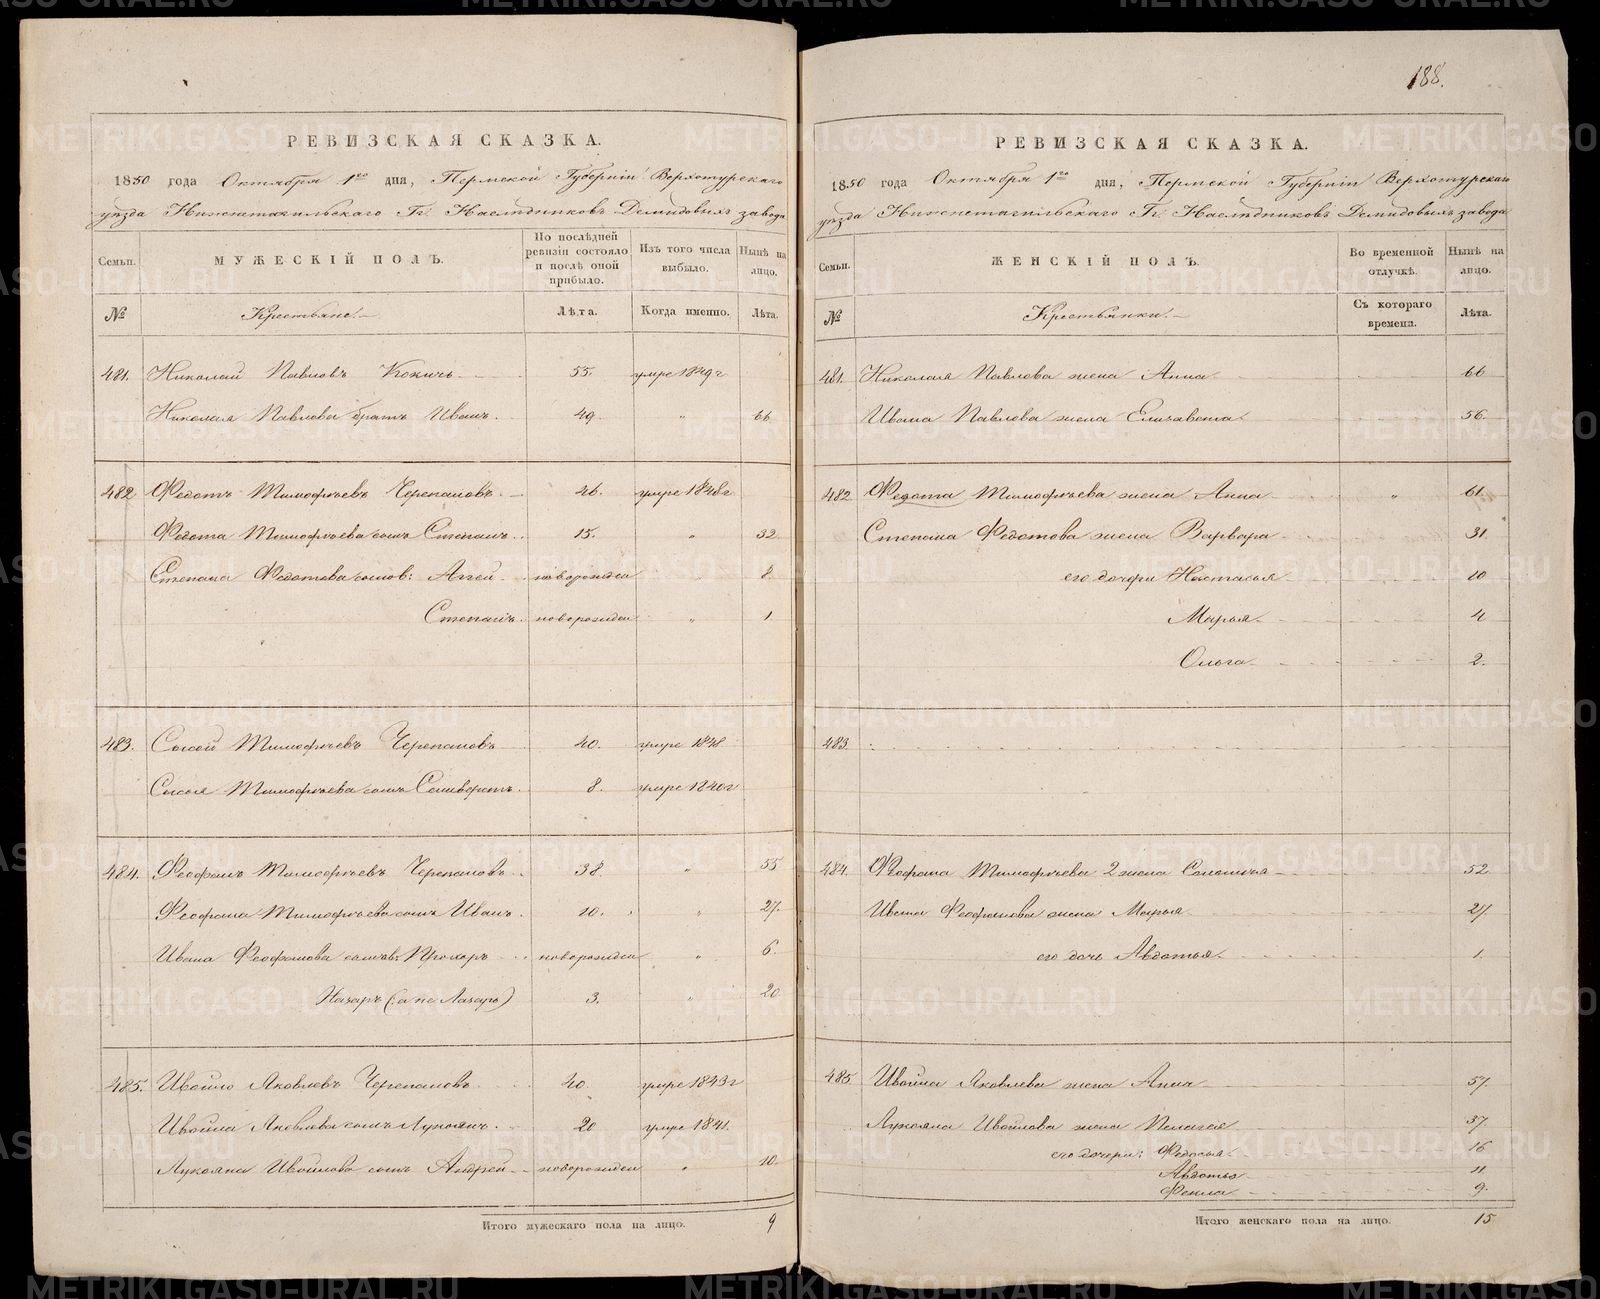 188.
РЕВИЗСКАЯ СКАЗКА.
1850 года Октября 1го дня, Пермской Губерніи Верхотурскаго
уѣзда Нижнетагильскаго Гг. Наслѣдниковъ Демидовыхъ завода
Семьи.
МУЖЕСКІЙ ПОЛЪ.
По послѣдней ревизіи состояло и послѣ оной прибыло.
Изъ того числа выбыло.
Нынѣ на лицо.
№
Крестьяне.
Лѣта.
Когда именно.
Лѣта.
481. Николай Павловъ 55. умре 1849 г
Николая Павлова братъ Иванъ. 49. " 66
482 Федотъ Тимофѣевъ Черепановъ. 46. умре 1848 г
Федота Тимофѣева сынъ Степанъ. 15. " 32
Степана Федотова сынов: Агей новорожден " 8.
Степанъ. новорожден " 1.
483. Сысой Тимофѣевъ Черепановъ 40. умре 1848
Сысоя Тимофѣева сынъ Селиверстъ. 8. умре 1840 г
484. Феофанъ Тимофѣевъ Черепановъ. 38. " 55
Феофана Тимофѣева сынъ Иванъ. 10. " 27.
Ивана Феофанова сынъ: Прохоръ новорожден " 6.
Назаръ (а не Лазарь) 3. " 20
485. Ивойло Яковлевъ Черепановъ 40. умре 1843 г
Ивойла Яковлева сынъ Лукоянъ. 20 умре 1841.
Лукояна Ивойлова сынъ Андрей новорожден " 10.
Итого мужескаго пола на лицо. 9
РЕВИЗСКАЯ СКАЗКА.
1850 года Октября 1го дня, Пермской Губерніи Верхотурскаго
уѣзда Нижнетагильскаго Гг. Наслѣдниковъ Демидовыхъ завода
Семьи.
ЖЕНСКІЙ ПОЛЪ.
Во временной отлучкѣ.
Нынѣ на лицо.
№
Крестьянки.
Съ котораго времена.
Лѣта.
481. Николая Павлова жена Анна 66
Ивана Павлова жена Елизавета 56.
482 Федота Тимофѣева жена Анна " 61.
Степана Федотова жена Варвара 31.
его дочери Настасья 10
Марья. 4
Ольга. 2.
483
484. Феофана Тимофѣева 2 жена Соломея 52
Ивана Феофанова жена Марья 27.
его дочь Авдотья. 1.
485 Ивойла Яковлева жена Анна 57.
Лукояна Ивойлова жена Пелагея 37.
его дочери: Федосья. 16
Авдотья 11
Фекла 9.
Итого женскаго пола на лицо. 15
METRIKI.GASO-URAL.RU